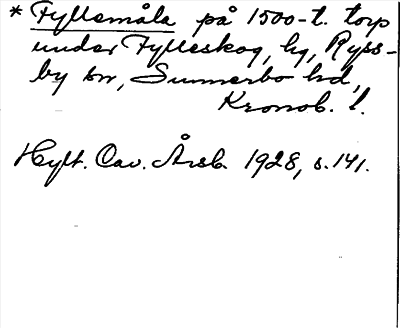 * Fyllsmåla på 1500-t. torp
under Fylleskog, hg, Ryss-
by sn, Sunnerbo hd,
Kronob. l.
Hylt. Cav. Årsb. 1928, s. 141.